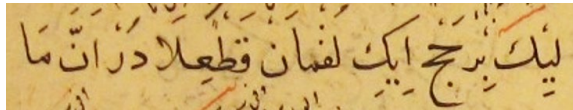 لیك بر حج ایك لقمان قطعلا در انّ ما